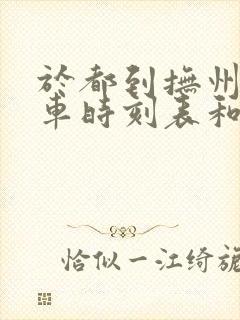 於都到撫州
車時刻表和
恰似一江绮旎